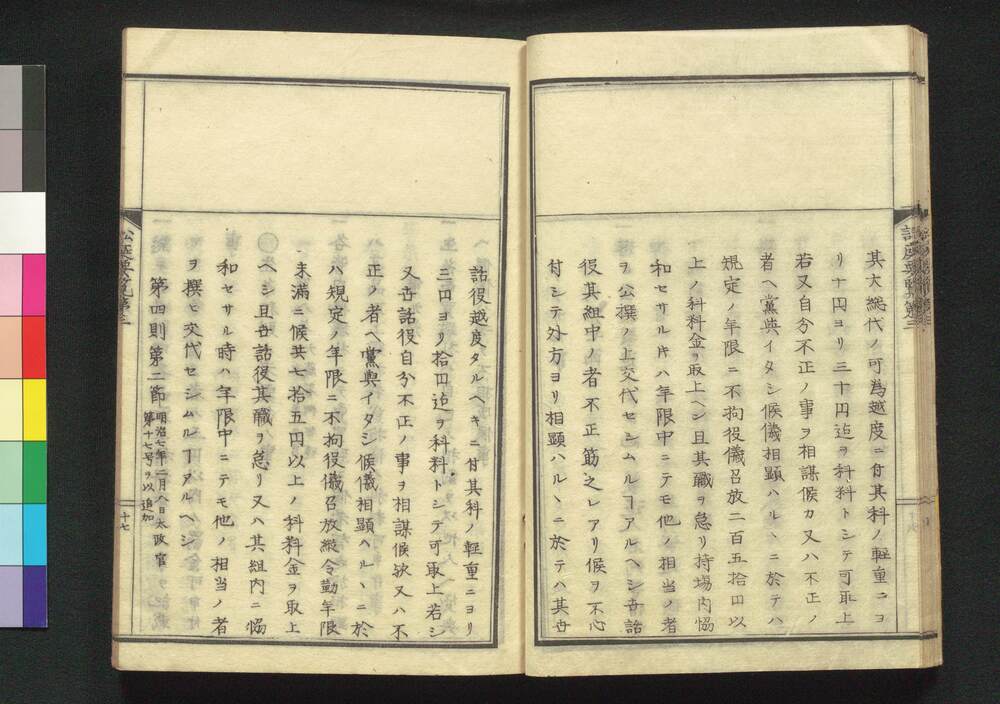 其大総代ノ可為越度ニ付其科ノ軽重ニヨ
リ十円ヨリ三十円迠ヲ科料トシテ可取上
若又自分不正ノ事ヲ相謀候カ又ハ不正ノ
者ヘ黨與イタシ候儀相顕ハルヽニ於テハ
規定ノ年限ニ不拘役儀召放二百五拾円以
上ノ科料金ヲ取上ヘシ且其職ヲ怠リ持場内恊
和セサル片ハ年限中ニテモ他ノ相当ノ者
ヲ公撰ノ上交代セシムルヿアルヘシ世話
役其組中ノ者不正筋之レアリ候ヲ不心
付シテ外方ヨリ相顕ハルヽニ於テハ其世
話役越度タルヘキニ付其科ノ軽重ニヨリ
三円ヨリ拾円迠ヲ科料トシテ可取上若シ
又世話役自分不正ノ事ヲ相謀候欤又ハ不
正ノ者ヘ黨與イタシ候儀相顕ヘルヽニ於
ハ規定ノ年限ニ不拘役儀召放縦令勤年限
未満ニ候共七拾五円以上ノ科料金ヲ取上
ヘシ且世話役其職ヲ怠リ又ハ其組内ニ恊
和セサル時ハ年限中ニテモ他ノ相当ノ者
ヲ撰ヒ交代セシムルヿアルヘシ
第四則第二節
明治七年二月八日太政官
第十七号ヲ以追加
十七